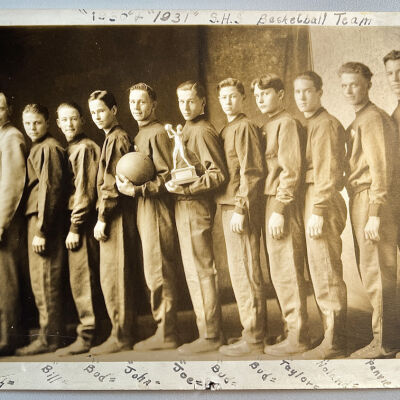 "1930" & "1931" S.H. Basketball Team
Bill= Bod= John= Joe= Bus= Bud= Taylor= Noland= Penrie